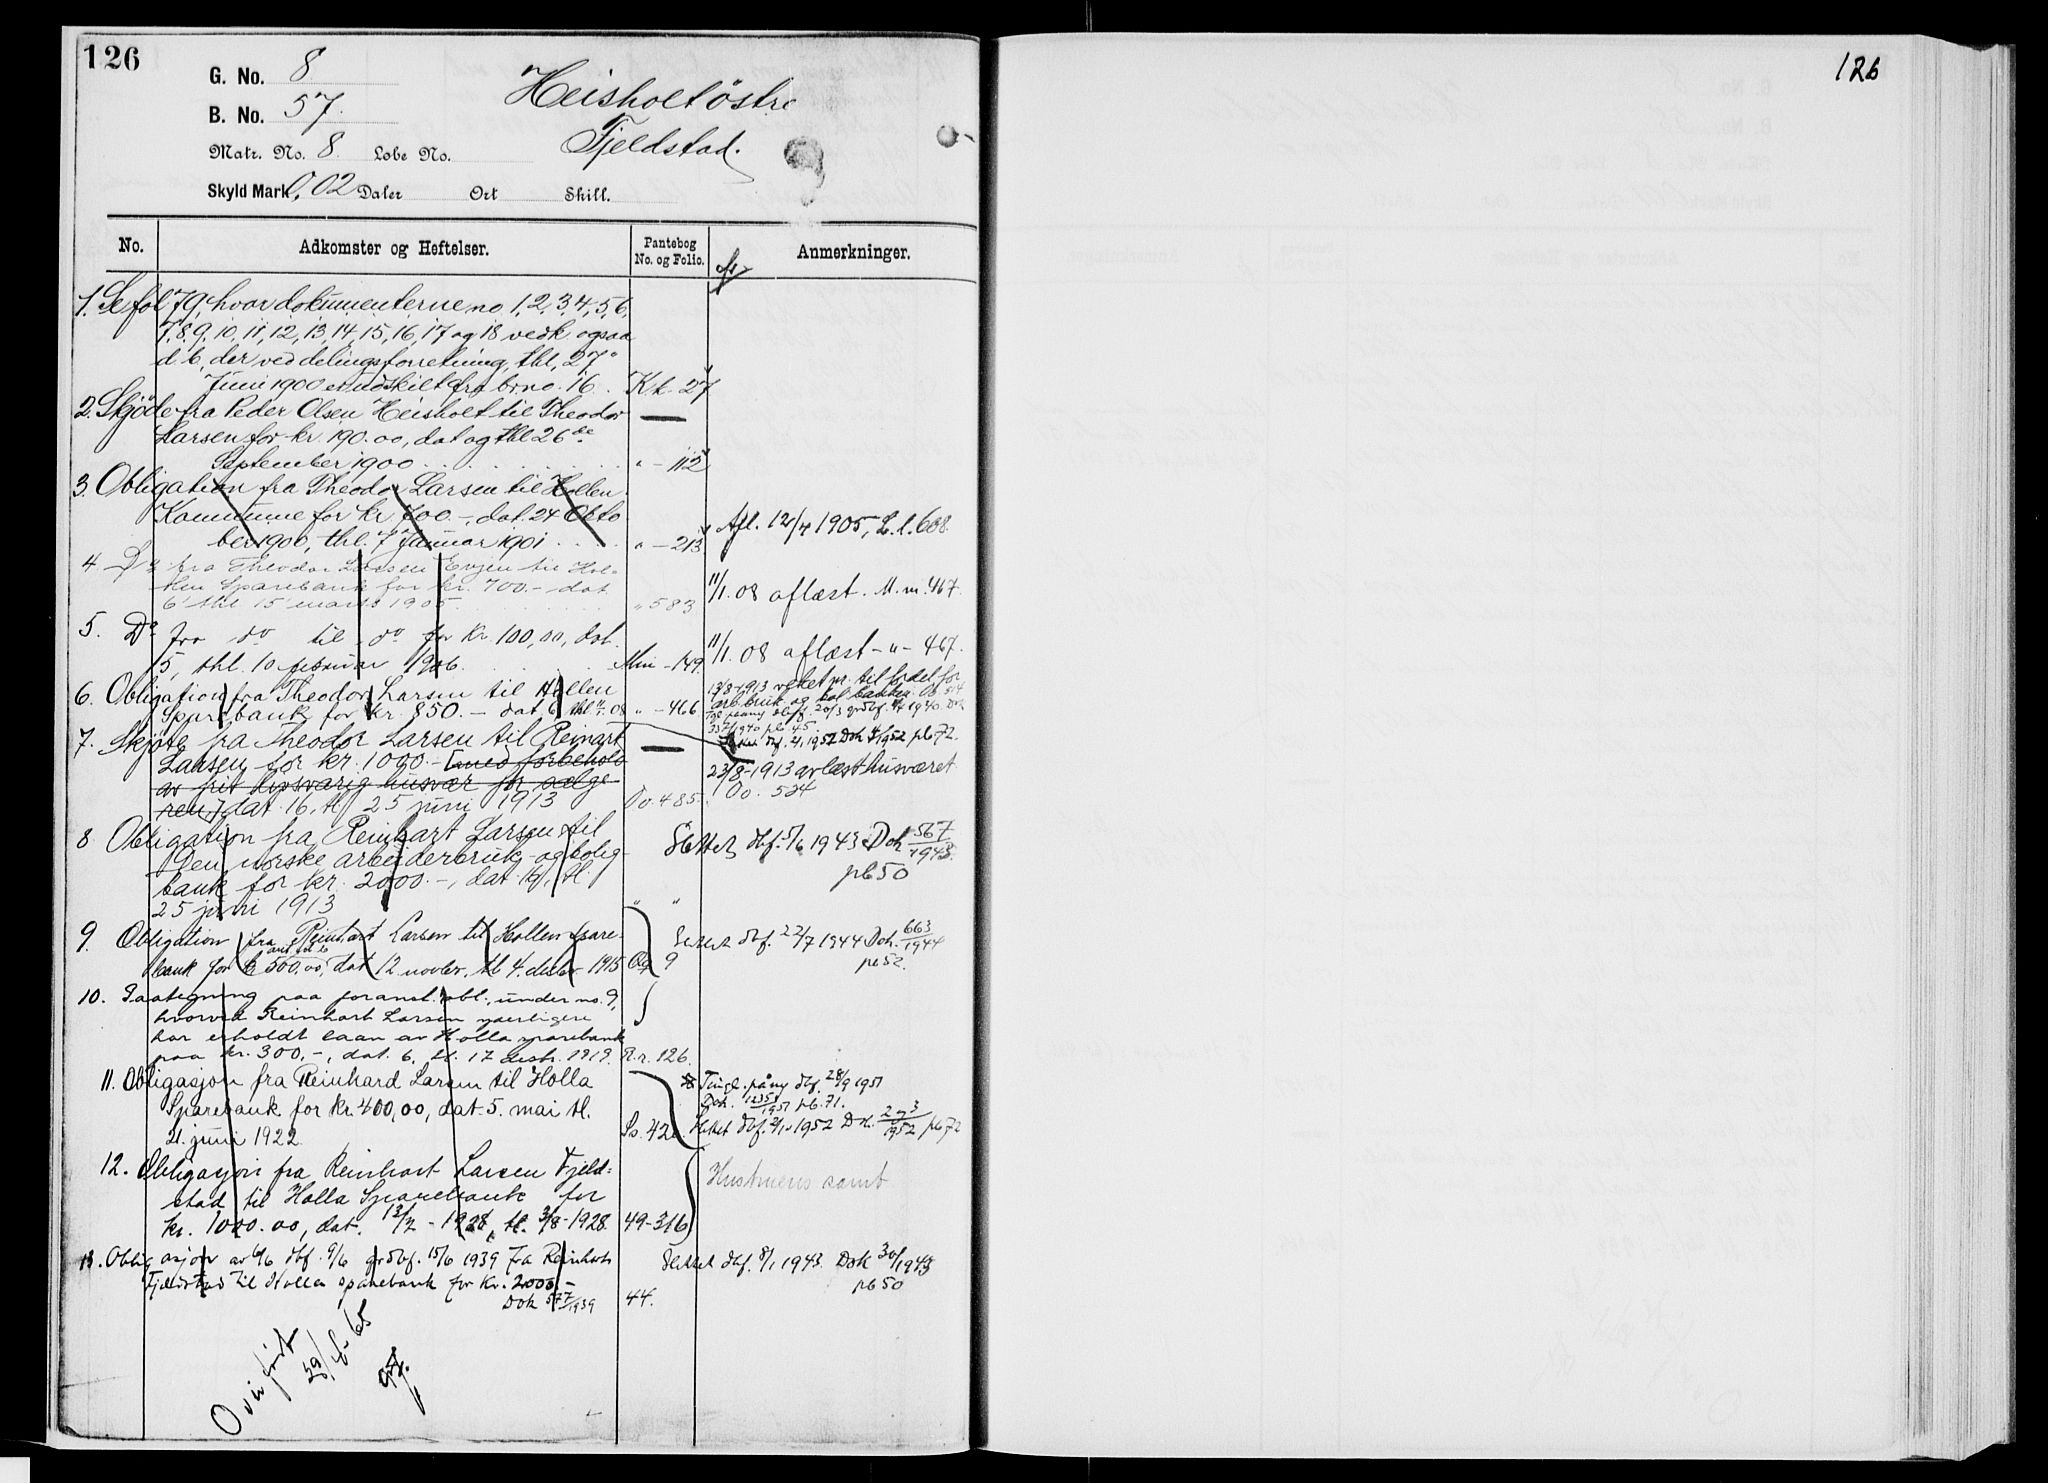 126
G. No. 8
B. No. 57.
Heisholt östre
Fjeldstad.
Matr. No. 8. Løbe No.
Skyld Mark 0,02 Daler Ort Skill.
No. Adkomster og Heftelser. Pantebog No. og Folio. Anmerkninger.
1. Se fol 79, hvor dokumenterne no 1, 2, 3, 4, 5, 6,
7, 8, 9, 10, 11, 12, 13, 14, 15, 16, 17 og 18 vedk ogsaa
d. b, der ved delingsforretning, thl, 27
Juni 1900 er udskilt fra br no. 16. Kk. 27
2. Skjöde fra Peder Olsen Heisholt til Theodor
Larsen for kr. 190.00, dat og thl 26de
September 1900 " - 112
3. Obligation fra Theodor Larsen til Hollen
Kommune for kr 700.-, dat. 24 Okto
ber 1900, thl. 7 Januar 1901 " - 213 Afl. 12/4 1905, L.l. 608.
4. Do fra Theodor Larsen Evjen til Hol-
len Sparebank for kr. 700.- dat
6 thl 15 marts 1905. " 583 11/1. 08 aflæst. M.m. 467.
5. Do fra do til do for kr. 100,00, dat.
5, thl. 10 februar 1906. Mm - 149. 11/1. 08 aflæst - " - 467.
6. Obligation fra Theodor Larsen til Hollen
Sparebank for kr. 850.- dat 6 thl 11/1. 08 " - 466 13/8-1913 veket pr. til fordel for
arb. bruk og bol. banken. Oo. 514
7. Skjøte fra Theodor Larsen til Reinart
Larsen for kr. 1000.- [med forbehold
av frit livsvarig husvær for sælge
ren,] dat. 16, tl 25 juni 1913 Oo. 485. 23/8-1913 avlæst husværet
Oo. 524
8 Obligation fra Reinhart Larsen til
Den norske arbeiderbruk- og bolig-
bank for kr. 2000.-, dat. 16, tl.
25 juni 1913 " " Slettet dbf. 5/6 1943 Dok 567/1943.
pb 50
9. Obligation fra Reinhart Larsen til Hollen spare-
bank for kr 500,00, dat 12 novbr. tl 4. desbr. 1915 Qq 9 Slettet dbf. 22/7 1944 Dok. 663/1944
pb 52.
10. Paategning paa foranst. obl., under no. 9,
hvorved Reinhart Larsen yderligere
har erholdt laan av Holla sparebank
paa kr. 300,-, dat. 6, tl. 17 desbr. 1919. R.r. 126.
11. Obligasjon fra Reinhard Larsen til Holla
Sparebank for kr. 400,00, dat 5. mai tl.
21. juni 1922. Tingl. påny dbf. 28/9 1951
Dok. 1951 pb. 71.
Slettet dbf. 1952 Dok. 1952 pb 72
12. Obligasjon fra Reinhart Larsen Fjeld-
stad til Holla Sparebank for
kr. 1000.00, dat. 13/2 - 1928, tl. 3/8-1928. 49-316 Hustruens samt.
13. Obligasjon av 6/6 dbf. 9/6 grdbf. 15/6 1939 fra Reinhart
Fjeldstad til Holla sparebank for kr. 2000,-
Dok 577/1939 44. Slettet dbf. 8/1 1943. Dok 30/1943
pb 50
Overført
29/
126